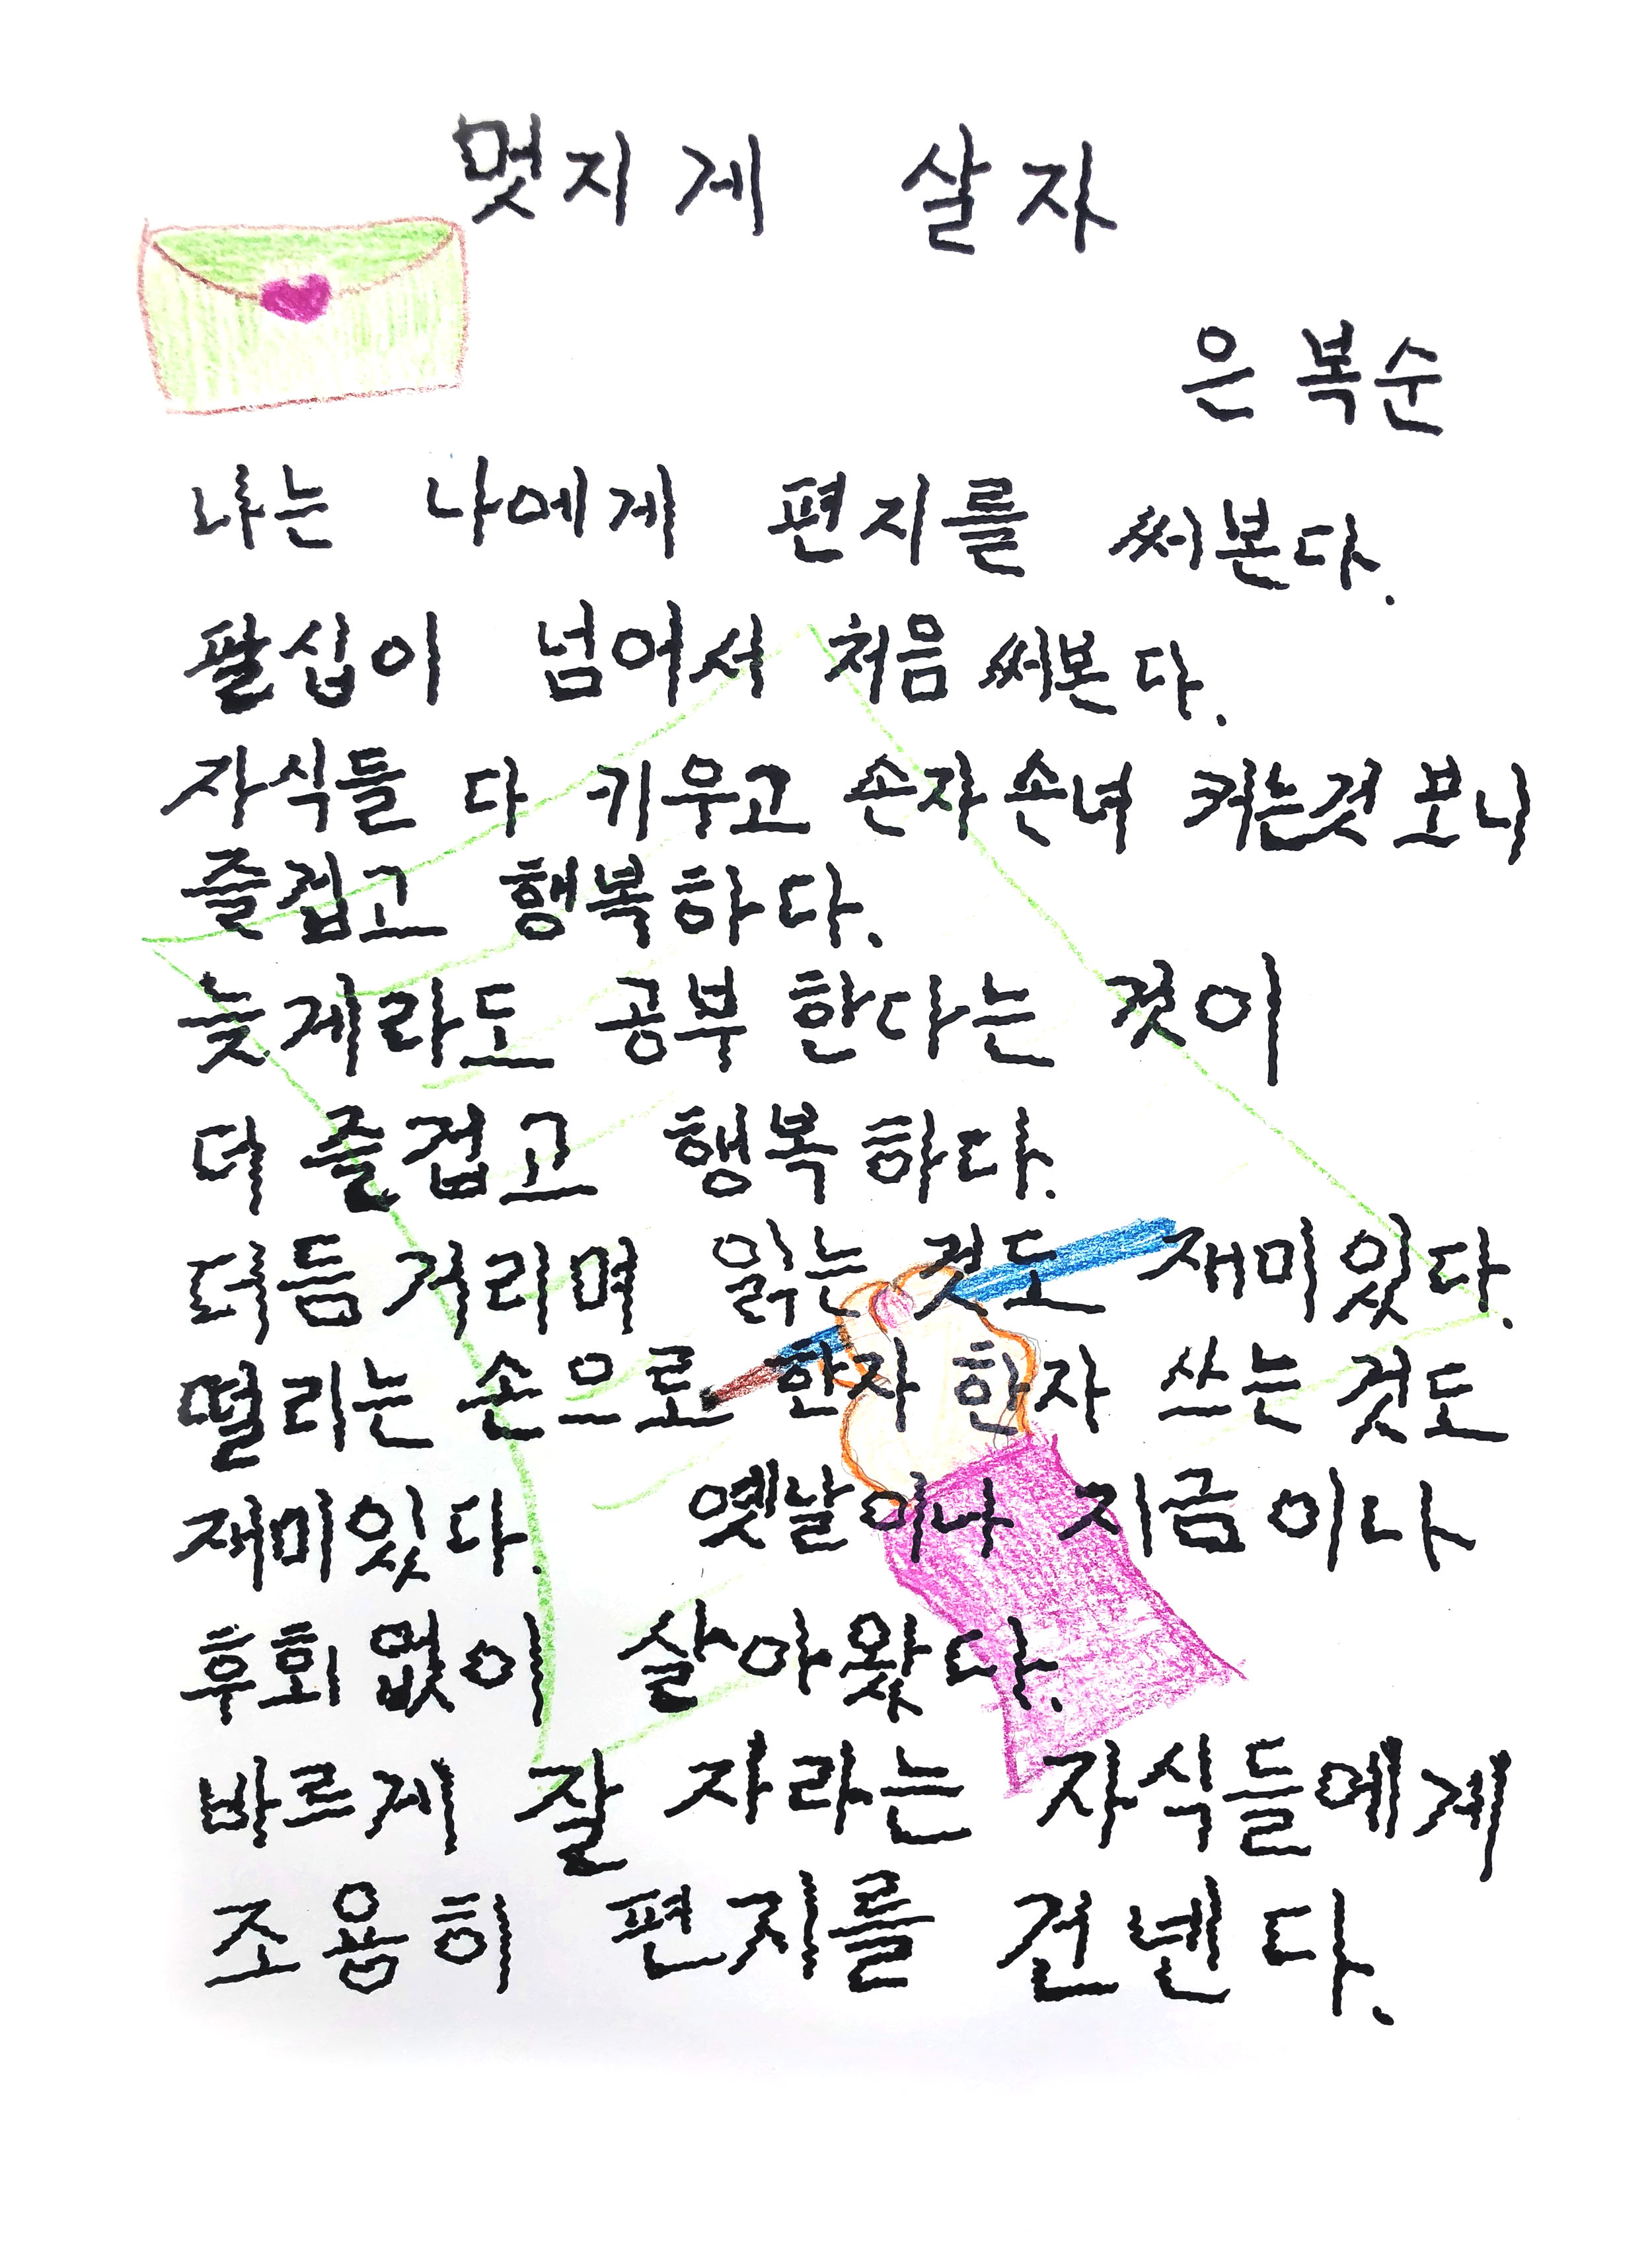 멋지게 살자
은복순
나는 나에게 편지를 써본다.
팔십이 넘어서 처음 써본다.
자식들 다 키우고 손자손녀 커는것 보니
즐겁고 행복하다.
늦게라도 공부 한다는 것이
더 즐겁고 행복하다.
더듬거리며 읽는 것도 재미있다.
떨리는 손으로 한자 한자 쓰는 것도
재미있다. 옛날이나 지금이나
후회없이 살아왔다.
바르게 잘 자라는 자식들에게
조용히 편지를 건넨다.